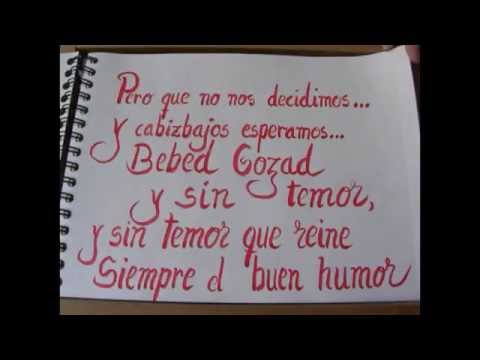 Pero que no nos decidimos...
y cabizbajos esperamos...
Bebed Gozad
y sin temor,
y sin temor que reine
Siempre el buen humor